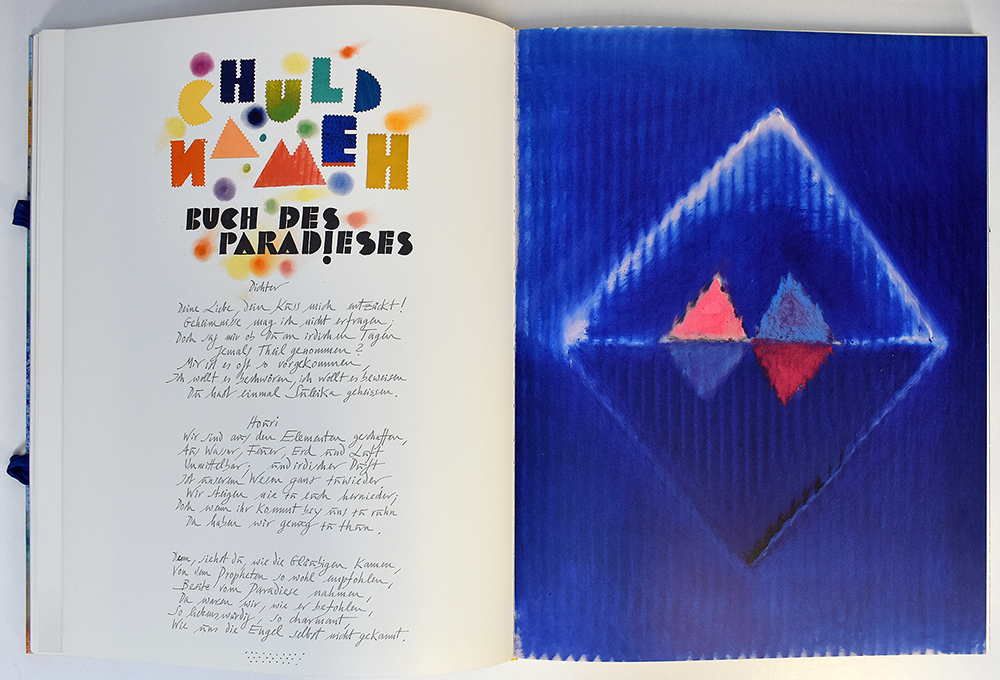 CHULD
NAMEH
BUCH DES
PARADIESES
Dichter
Deine Liebe, dein Kuss mich entzückt!
Geheimnisse mag ich nicht erfragen;
Doch sag mir ob Du an irdischen Tagen
Jemals Theil genommen?
Mir ist es oft so vorgekommen,
Ich wollt es beschwören, ich wollt es beweisen
Du hast einmal Suleika geheissen.
Houri
Wir sind aus den Elementen geschaffen,
Aus Wasser, Feuer, Erd und Luft
Unmittelbar; und irdischer Duft
Ist unserem Wesen ganz zuwieder
Wir steigen nie zu euch hernieder;
Doch wenn ihr kommt bey uns zu ruhn
Da haben wir genug zu thun.
Denn, siehst du, wie die Gläubigen kamen,
Von dem Propheten so wohl empfohlen,
Besitz vom Paradiese nahmen,
Da waren wir, wie er befohlen,
So liebenswürdig, so charmant,
Wie uns die Engel selbst nicht gekannt.